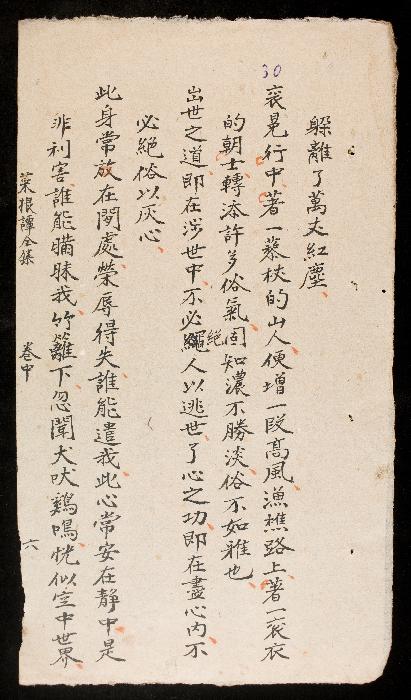 30
躱離了萬丈紅塵
衮冕行中著一藜杖的山人便增一段高風漁樵路上著一衮衣
的朝士轉添許多俗氣固知濃不勝淡俗不如雅也
出世之道即在涉世中不必絕人以逃世了心之功即在盡心內不
必絕俗以灰心
此身常放在閒處榮辱得失誰能遣我此心常安在靜中是
非利害誰能瞞昧我竹籬下忽聞犬吠鷄鳴恍似空中世界
菜根譚全集 卷中 六